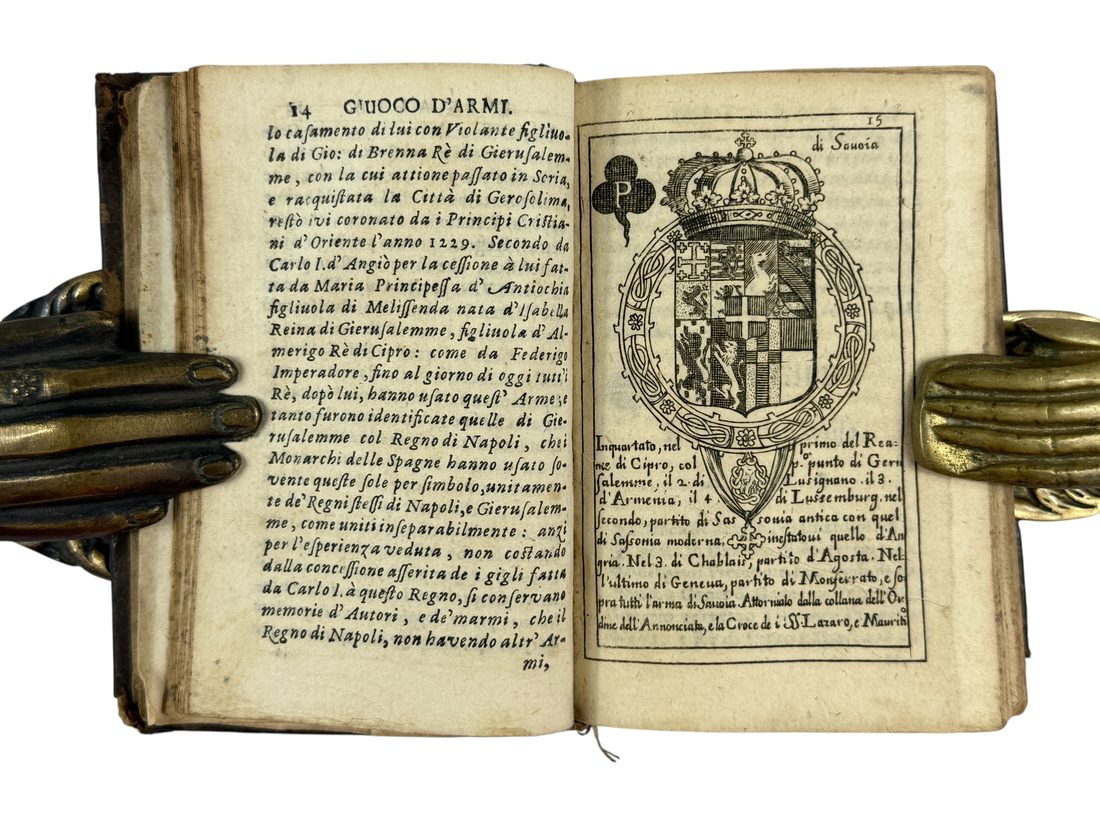 14 GIUOCO D'ARMI.
lo casamento di lui con Violante figliuo-
la di Gio: di Brenna Rè di Gierusalem-
me, con la cui attione passato in Soria,
e racquistata la Città di Gerosolima,
restò ivi coronato da i Principi Cristia-
ni d'Oriente l'anno 1229. Secondo da
Carlo I. d'Angiò per la cessione à lui fat-
ta da Maria Principessa d'Antiochia
figliuola di Melissenda nata d'Isabella
Reina di Gierusalemme, figliuola d'Al-
merigo Rè di Cipro: come da Federigo
Imperadore, fino al giorno di oggi tutti i
Rè, dopò lui, hanno usato quest'Arme; e
tanto furono identificate quelle di Gie-
rusalemme col Regno di Napoli, che i
Monarchi delle Spagne hanno usato so-
vente queste sole per simbolo, unitamen-
te de' Regni stessi di Napoli, e Gierusalem-
me, come uniti inseparabilmente: anzi
per l'esperienza veduta, non costando
dalla concessione asserita de i gigli fatta
da Carlo I. à questo Regno, si conservano
memorie d'Autori, e de' marmi, che il
Regno di Napoli, non havendo altr'Ar-
mi,
15
di Sauoia
P
Inquartato, nel primo del Rea=
me di Cipro, col p.º punto di Geru
salemme, il 2. di Lusignano. il 3.
d'Armenia, il 4. di Lussemburg. nel
secondo, partito di Sassonia antica con quel
di Sassonia moderna. innestatoui quello d'An
gria. Nel 3. di Chablais, partito d'Agosta. Nel=
l'ultimo di Geneua, partito di Monferrato, e so
pra tutti l'arma di Sauoia. Attorniato dalla collana dell'Or
dine dell'Annonciata, e la Croce de i SS. Lazaro, e Mauritio